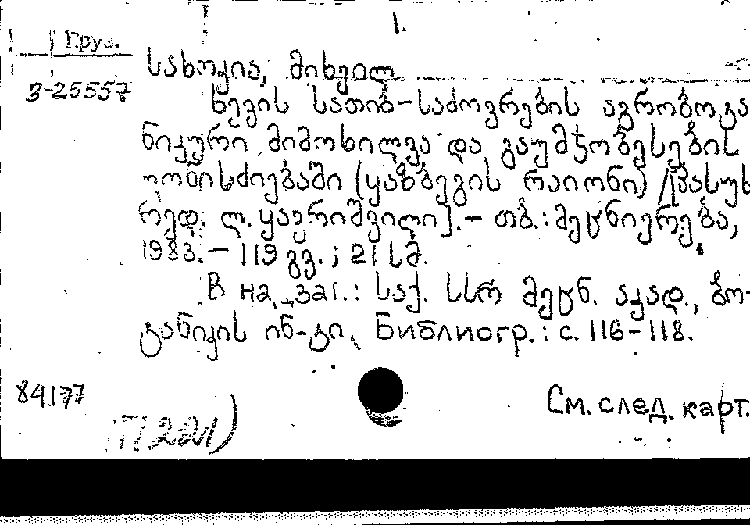 1.
Груз.
3-25557
სახოკია, მიხეილ
ხევის სათიბ-საძოვრების აგრობოტა
ნიკური მიმოხილვა და გაუმჯობესების
ღონისძიებაში (ყაზბეგის რაიონი) /[პასუხ
რედ. ლ. ყავრიშვილი]. - თბ.: მეცნიერება,
1983. - 119 გვ.; 21 სმ.
В на заг.: საქ. სსრ მეცნ. აკად., ბო-
ტანიკის ინ-ტი. Библиогр.: с. 116-118.
84177
См. след. карт.
(П221)